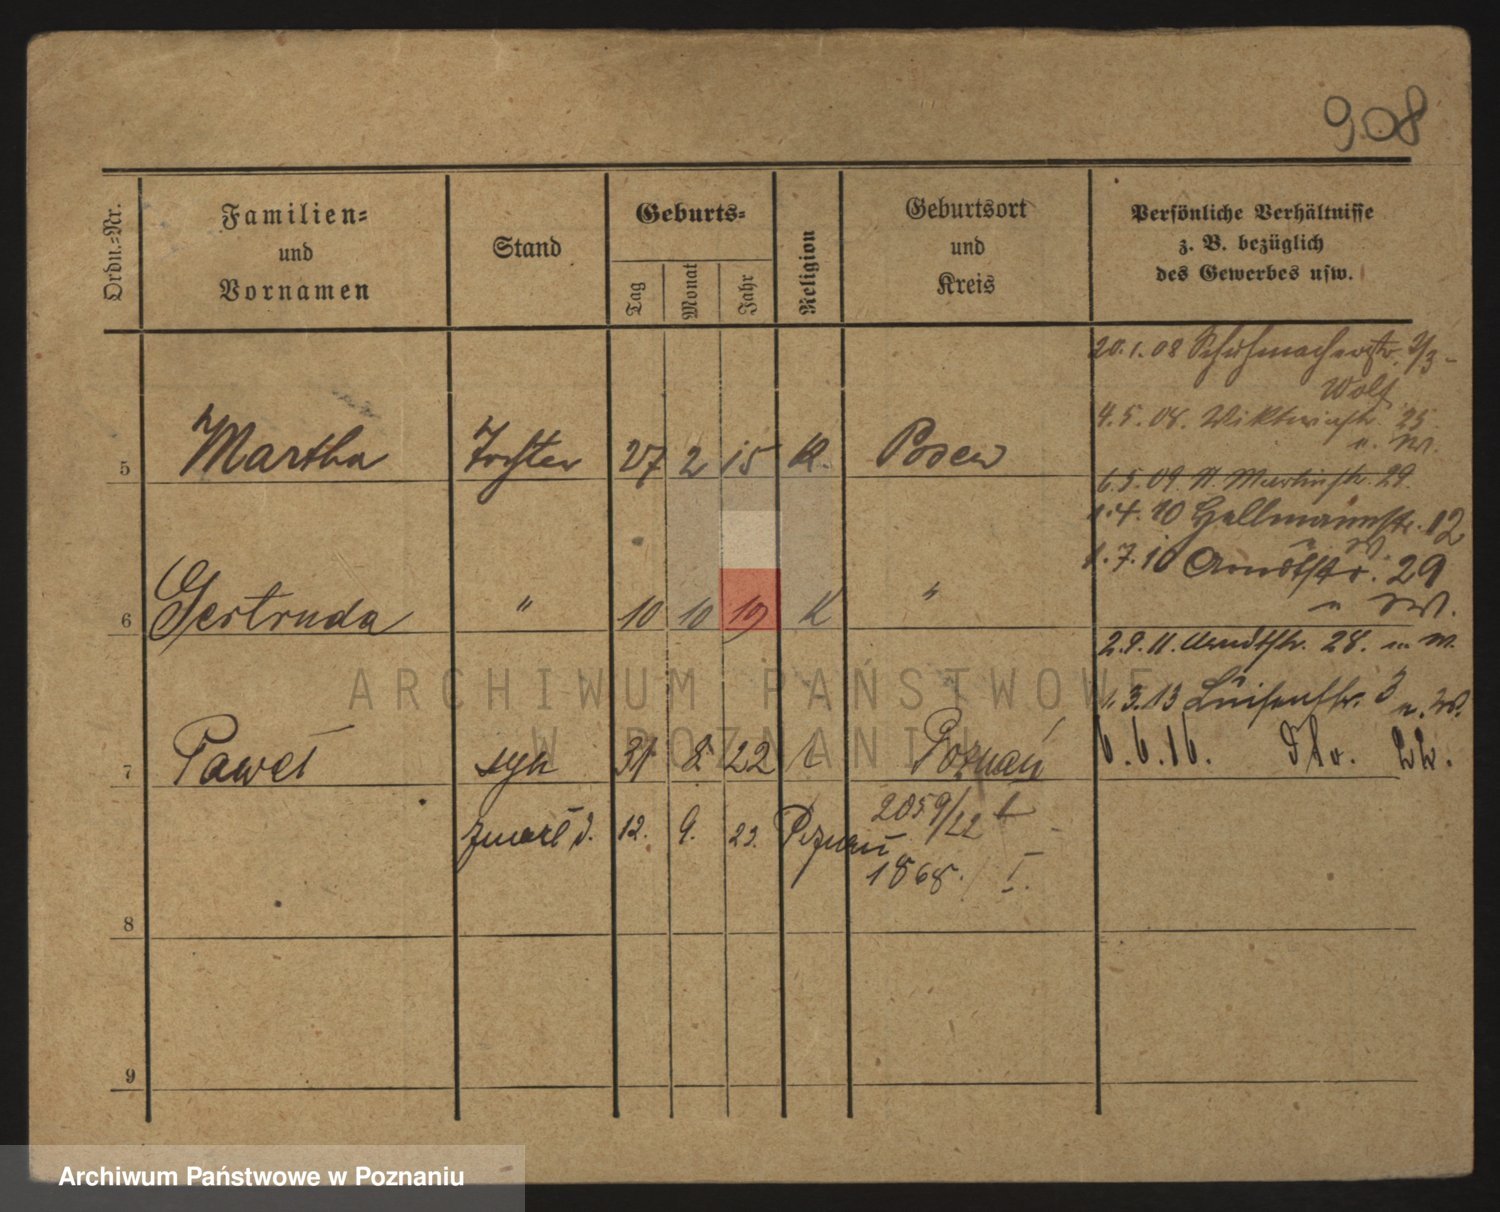 908
Ordn.-Nr.
Familien-
und
Vornamen
Stand
Geburts-
Tag
Monat
Jahr
Religion
Geburtsort
und
Kreis
Persönliche Verhältnisse
z. B. bezüglich
des Gewerbes usw.
20.1.08 Schuhmacherstr. 2/3
Wolf
4.5.08. Viktoriastr. 25.
u. W.
5 Martha Tochter 27 2 15 K. Posen
6.5.09. St. Martinstr. 29.
1.4.10 Hellmannstr. 12
1.7.10 Arndtstr. 29
u W.
6 Gertruda " 10 10 19 K "
2.9.11. Arndtstr. 28. u W.
1.3.13 Luisenstr. 3 u. W.
6.6.16. Str. 22.
7 Paweł syn 31 8 22 k Poznań
zmarł d. 12. 9. 22. Poznań
2059/22
1868. I.
8
9
ARCHIWUM PAŃSTWOWE
W POZNANIU
Archiwum Państwowe w Poznaniu